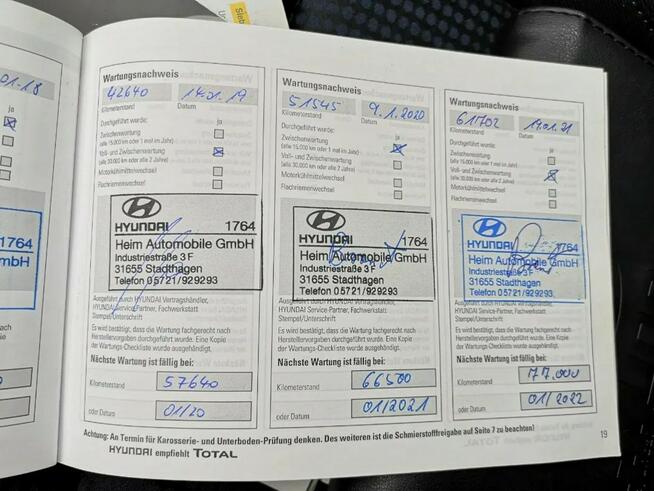 01-18
ja
Wartungsnachweis
42640
14.01.19
Kilometerstand
Datum
Durchgeführt wurde:
ja
Zwischenwartung
(alle 15.000 km oder 1 mal im Jahr)
Voll- und Zwischenwartung
(alle 30.000 km oder alle 2 Jahre)
Motorkühlmittelwechsel
Flachriemenwechsel
HYUNDAI
1764
Heim Automobile GmbH
Industriestraße 3 F
31655 Stadthagen
Telefon 05721/929293
Ausgeführt durch HYUNDAI Vertragshändler,
HYUNDAI Service-Partner, Fachwerkstatt
Stempel/Unterschrift
Es wird bestätigt, dass die Wartung fachgerecht nach
Herstellervorgaben durchgeführt wurde. Eine Kopie
der Wartungs-Checkliste wurde ausgehändigt.
Nächste Wartung ist fällig bei:
Kilometerstand
57640
oder Datum
01/20
Wartungsnachweis
51545
9.1.2020
Kilometerstand
Datum
Durchgeführt wurde:
ja
Zwischenwartung
(alle 15.000 km oder 1 mal im Jahr)
Voll- und Zwischenwartung
(alle 30.000 km oder alle 2 Jahre)
Motorkühlmittelwechsel
Flachriemenwechsel
HYUNDAI
1764
Heim Automobile GmbH
Industriestraße 3 F
31655 Stadthagen
Telefon 05721/929293
Ausgeführt durch HYUNDAI Vertragshändler,
HYUNDAI Service-Partner, Fachwerkstatt
Stempel/Unterschrift
Es wird bestätigt, dass die Wartung fachgerecht nach
Herstellervorgaben durchgeführt wurde. Eine Kopie
der Wartungs-Checkliste wurde ausgehändigt.
Nächste Wartung ist fällig bei:
Kilometerstand
66500
oder Datum
01/2021
Wartungsnachweis
61702
Kilometerstand
Datum
Durchgeführt wurde:
ja
Zwischenwartung
(alle 15.000 km oder 1 mal im Jahr)
Voll- und Zwischenwartung
(alle 30.000 km oder alle 2 Jahre)
Motorkühlmittelwechsel
Flachriemenwechsel
HYUNDAI
1764
Heim Automobile GmbH
Industriestraße 3 F
31655 Stadthagen
Telefon 05721/929293
Ausgeführt durch HYUNDAI Vertragshändler,
HYUNDAI Service-Partner, Fachwerkstatt
Stempel/Unterschrift
Es wird bestätigt, dass die Wartung fachgerecht nach
Herstellervorgaben durchgeführt wurde. Eine Kopie
der Wartungs-Checkliste wurde ausgehändigt.
Nächste Wartung ist fällig bei:
Kilometerstand
77.000
oder Datum
01/2022
Achtung: An Termin für Karosserie- und Unterboden-Prüfung denken. Des weiteren ist die Schmierstofffreigabe auf Seite 7 zu beachten!
HYUNDAI empfiehlt TOTAL
19